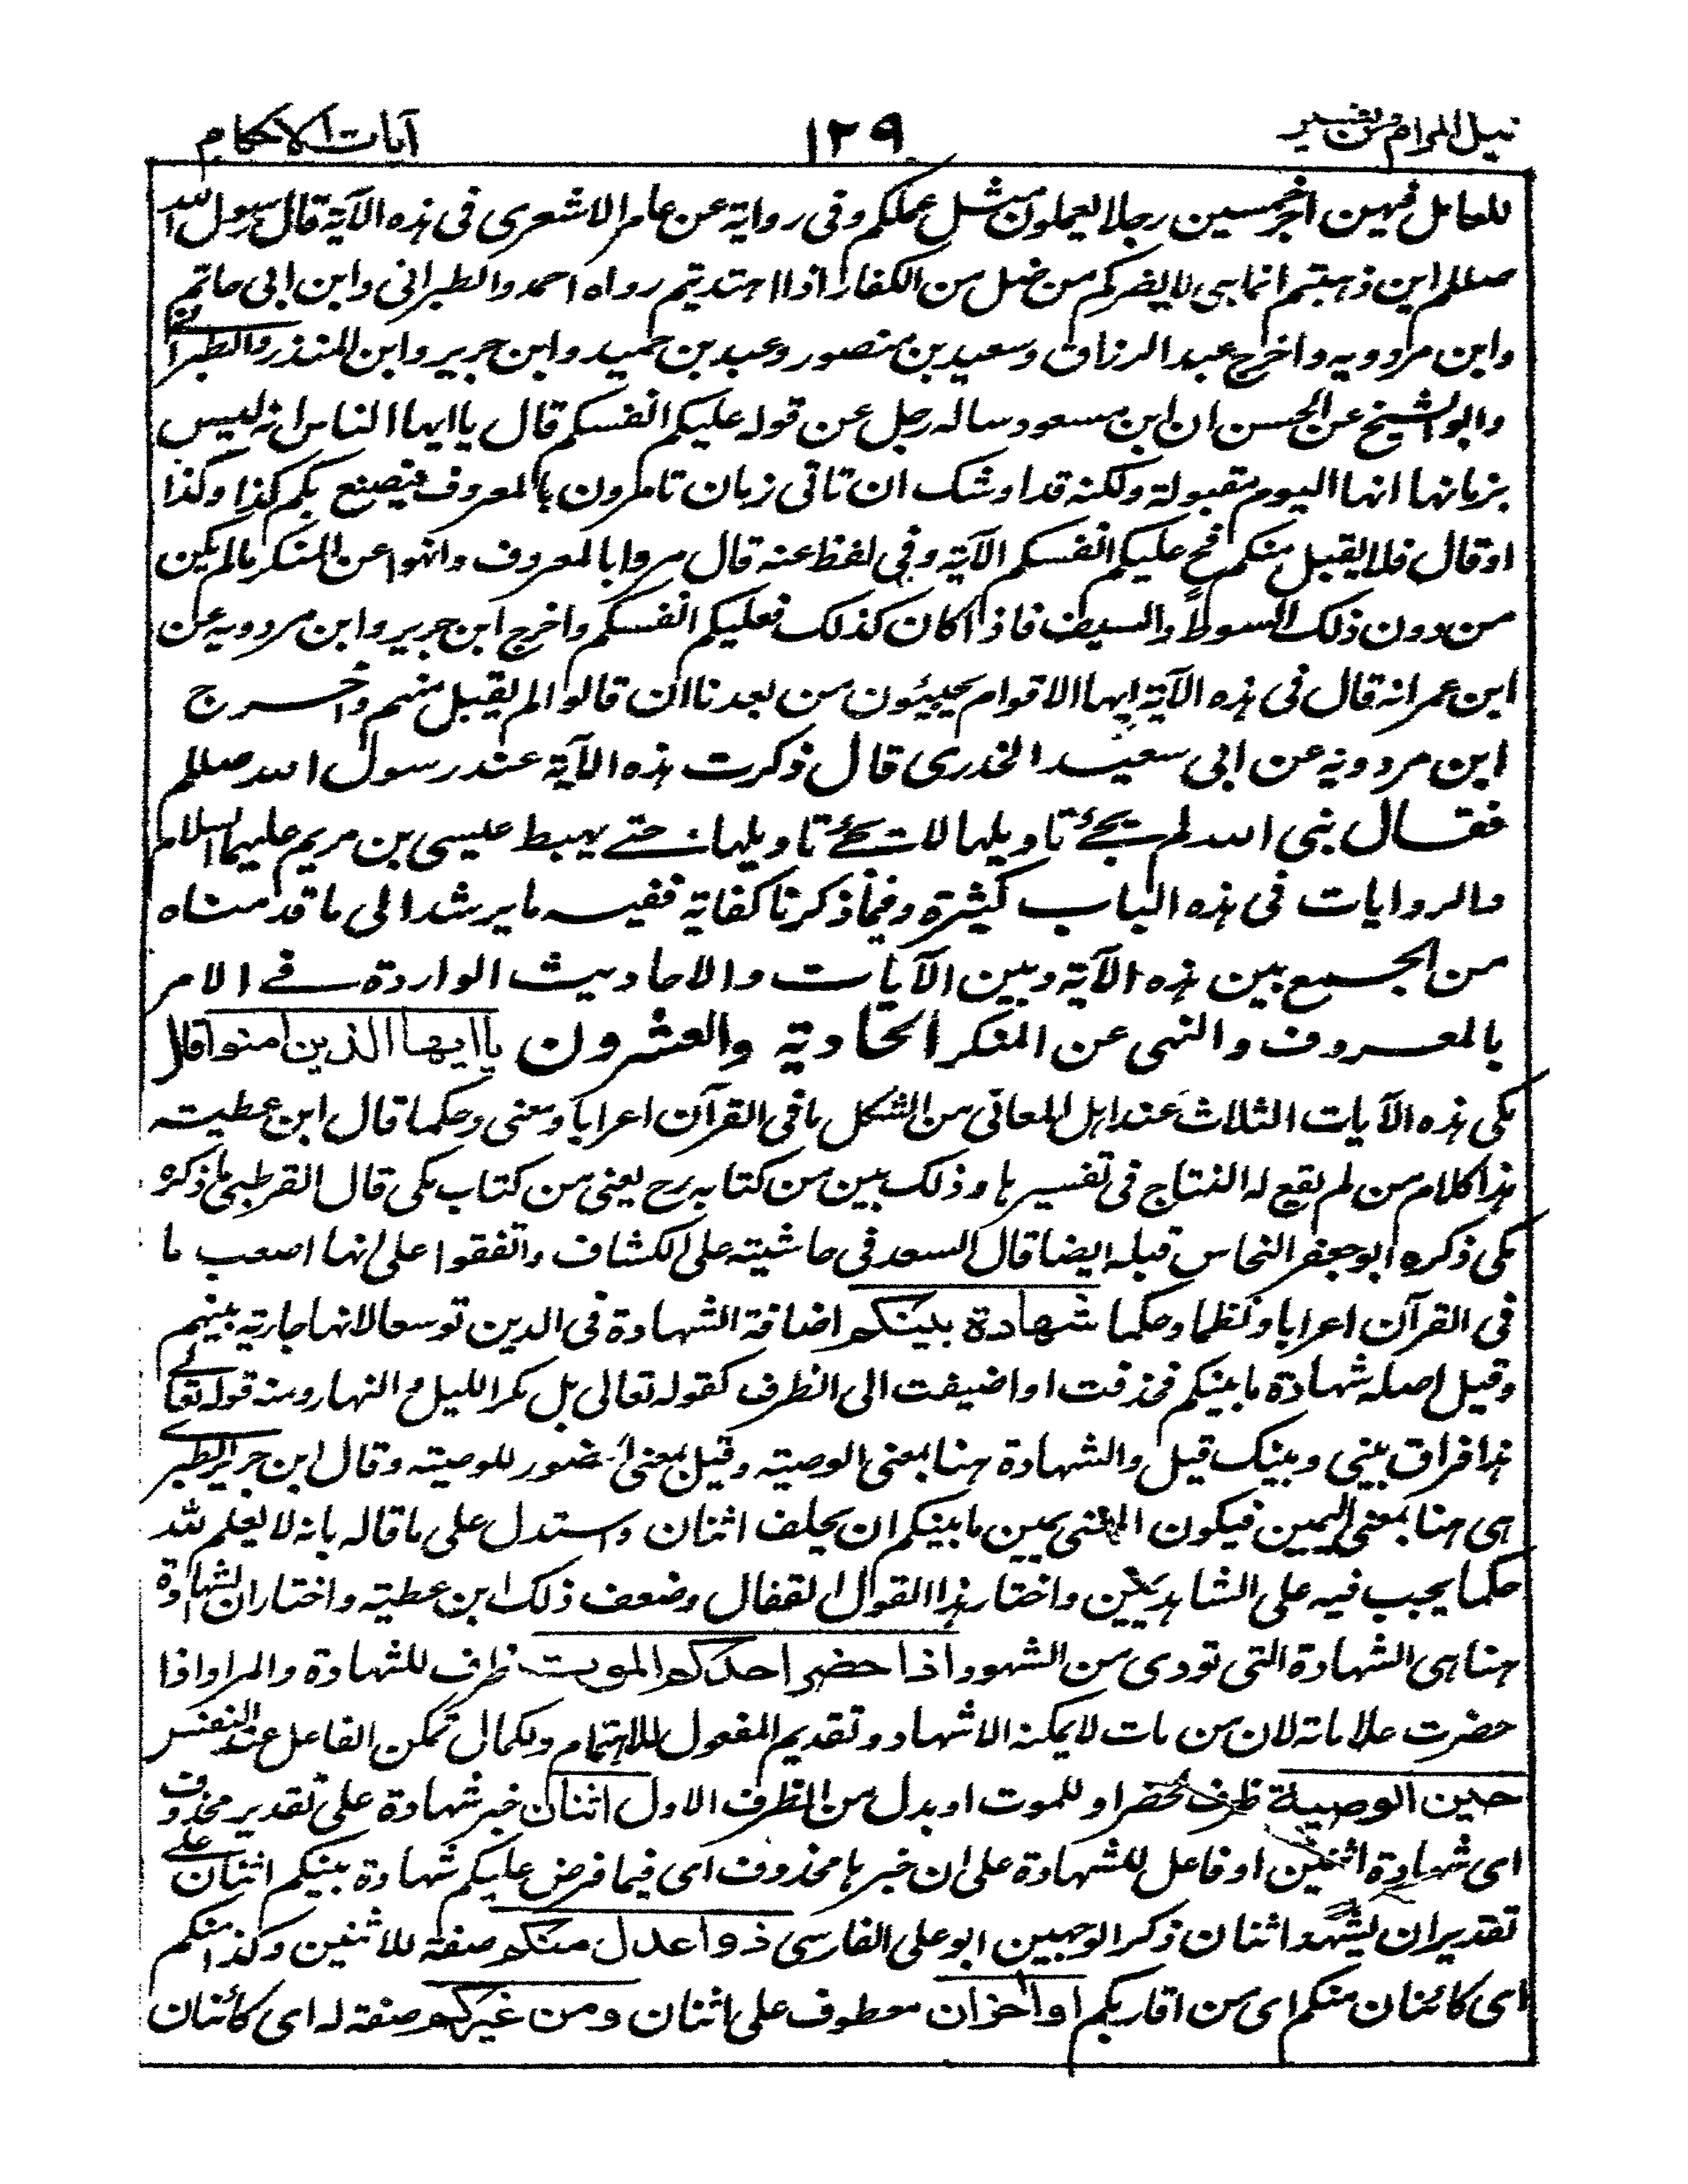 نيل المرام من تفسير ١٢٩ آيات الاحكام
للعامل فيهن اجر خمسين رجلا يعملون مثل عملكم وفى رواية عن عامر الاشعرى فى هذه الآية قال رسول الله
صللم اين ذهبتم انما هى لا يضركم من ضل من الكفار اذا اهتديتم رواه احمد والطبرانى وابن ابى حاتم
وابن مردويه واخرج عبد الرزاق وسعيد بن منصور وعبد بن حميد وابن جرير وابن المنذر والطبرانى
وابو الشيخ عن الحسن ان ابن مسعود ساله رجل عن قوله عليكم انفسكم قال يا ايها الناس انه ليس
بزمانها انها اليوم مقبولة ولكنه قد اوشك ان تاتى زمان تامرون بالمعروف فيصنع بكم كذا وكذا
او قال فلا يقبل منكم فح عليكم انفسكم الآية وفى لفظ عنه قال مروا بالمعروف وانهوا عن المنكر مالم يكن
من دون ذلك السوط والسيف فاذا كان كذلك فعليكم انفسكم واخرج ابن جرير وابن مردويه عن
ابن عمر انه قال فى هذه الآية انها الاقوام يجيئون من بعدنا ان قالوا لم يقبل منهم واخرج
ابن مردويه عن ابى سعيد الخدرى قال ذكرت هذه الآية عند رسول الله صللم
فقال نبى الله لم يجئ تاويلها لا يجئ تاويلها حتے يهبط عيسى بن مريم عليهما السلام
والروايات فى هذه الباب كثيرة وفيما ذكرنا كفاية ففيه ما يرشد الى ما قدمناه
من الجمع بين هذه الآية وبين الآيات والاحاديث الواردة فے الامر
بالمعروف والنهى عن المنكر الحادية والعشرون يا ايها الذين امنوا قال
مكى هذه الآيات الثلاث عند اهل المعانى من اشكل ما فى القرآن اعرابا ومعنى وحكما قال ابن عطية
هذا كلام من لم يقع له الثناج فى تفسيرها وذلك بين من كتابه رح يعنى من كتاب مكى قال القرطبى ما ذكره
مكى ذكره ابو جعفر النحاس قبله ايضا قال السعد فى حاشيته على الكشاف واتفقوا على انها اصعب ما
فى القرآن اعرابا ونظما وحكما شهادة بينكم اضافة الشهادة فى الدين توسعا لانها جارية بينهم
وقيل اصله شهادة ما بينكم فحذفت ما واضيفت الى الظرف كقوله تعالى بل مكر الليل والنهار ومنه قوله تعالے
هذا فراق بينى وبينك قيل والشهادة هنا بمعنى الوصية وقيل بمعنى الحضور للوصية وقال ابن جرير الطبرى
هى هنا بمعنى اليمين فيكون المعنى يمين ما بينكم ان يحلف اثنان واستدل على ما قاله بانه لا يعلم لله
حكما يجب فيه على الشاهد يمين واختار هذا القول القفال وضعف ذلك ابن عطية واختار ان الشهادة
هنا هى الشهادة التى تودى من الشهود اذا حضر احدكم الموت ظرف للشهادة والمراد اذا
حضرت علاماته لان من مات لا يمكنه الاشهاد وتقديم المفعول للاهتمام ولكمال تمكن الفاعل عند النفس
حين الوصية ظرف لحضر او للموت او بدل من الظرف الاول اثنان خبر شهادة على تقدير محذوف
اى شهادة اثنين او فاعل للشهادة على ان خبرها محذوف اى فيما فرض عليكم شهادة بينكم اثنان علے
تقدير ان يشهد اثنان ذكر الوجهين ابو على الفارسى ذوا عدل منكم صفة للاثنين وكذا منكم
اى كائنان منكم اى من اقاربكم او اخران معطوف على اثنان ومن غيركم صفة له اى كائنان